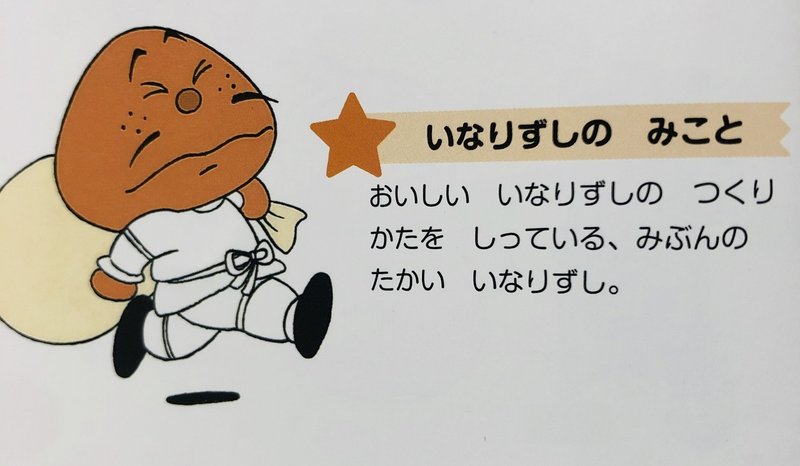 いなりずしの　みこと
おいしい　いなりずしの　つくり
かたを　しっている、みぶんの
たかい　いなりずし。